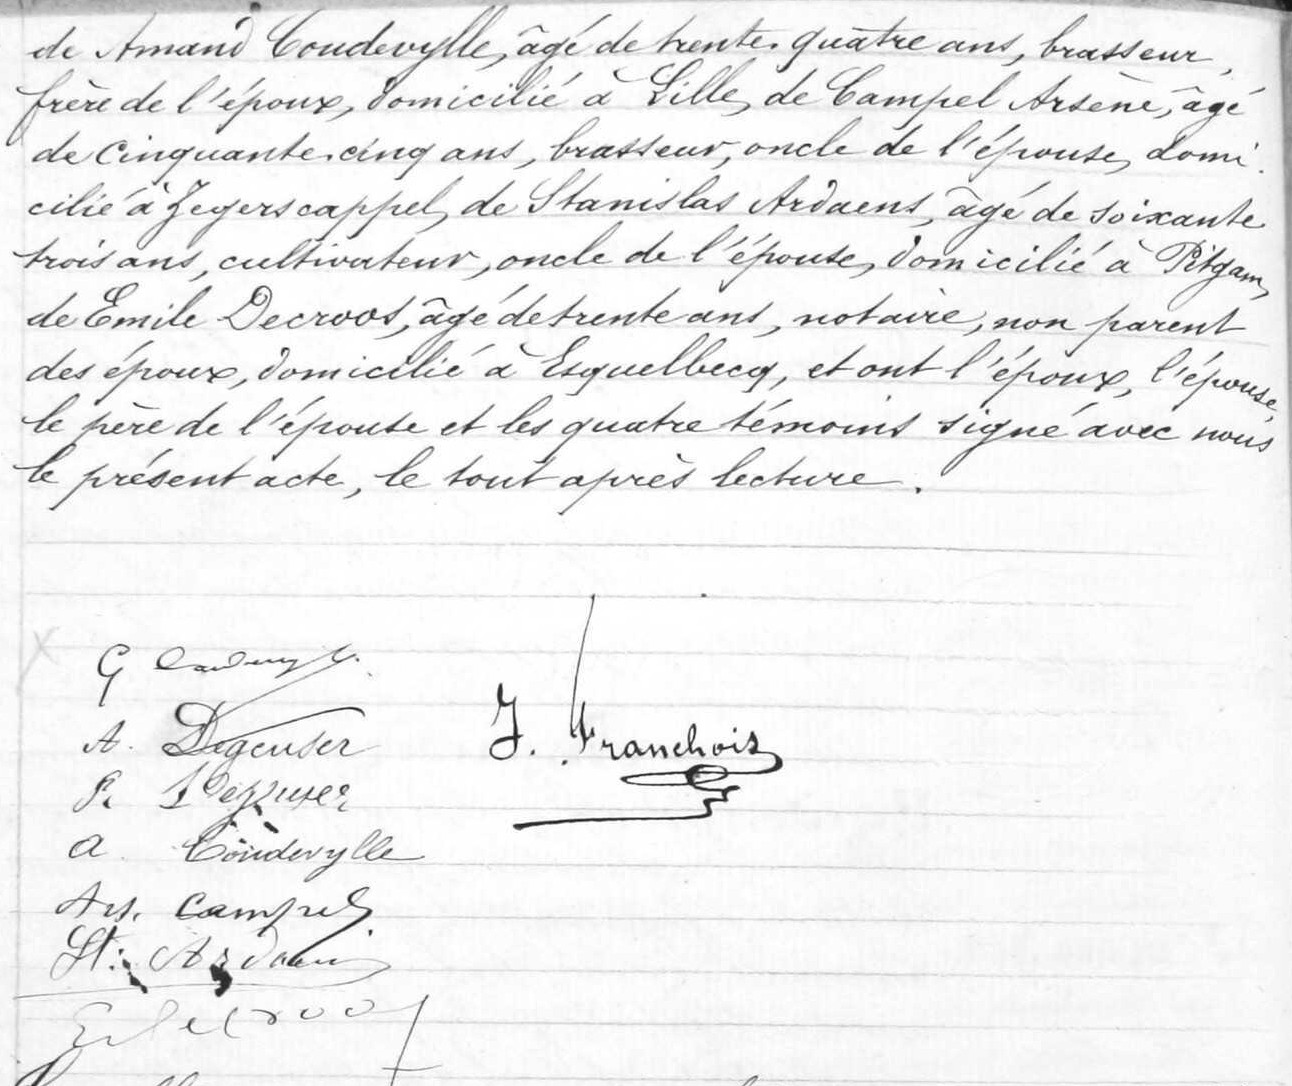 de Amand Coudevylle, âgé de trente-quatre ans, brasseur,
frère de l'époux, domicilié à Lille, de Campel Arsène, âgé
de cinquante-cinq ans, brasseur, oncle de l'épouse, domi-
cilié à Zegerscappel, de Stanislas Ardaens, âgé de soixante
trois ans, cultivateur, oncle de l'épouse, domicilié à Pitgam,
de Emile Decroos, âgé de trente ans, notaire, non parent
des époux, domicilié à Esquelbecq, et ont l'époux, l'épouse,
le père de l'épouse et les quatre témoins signé avec nous
le présent acte, le tout après lecture.
G
A. Degeuser
J. Franchois
a Coudevylle
Ars. Campel
St: Ardaens
E Decroos